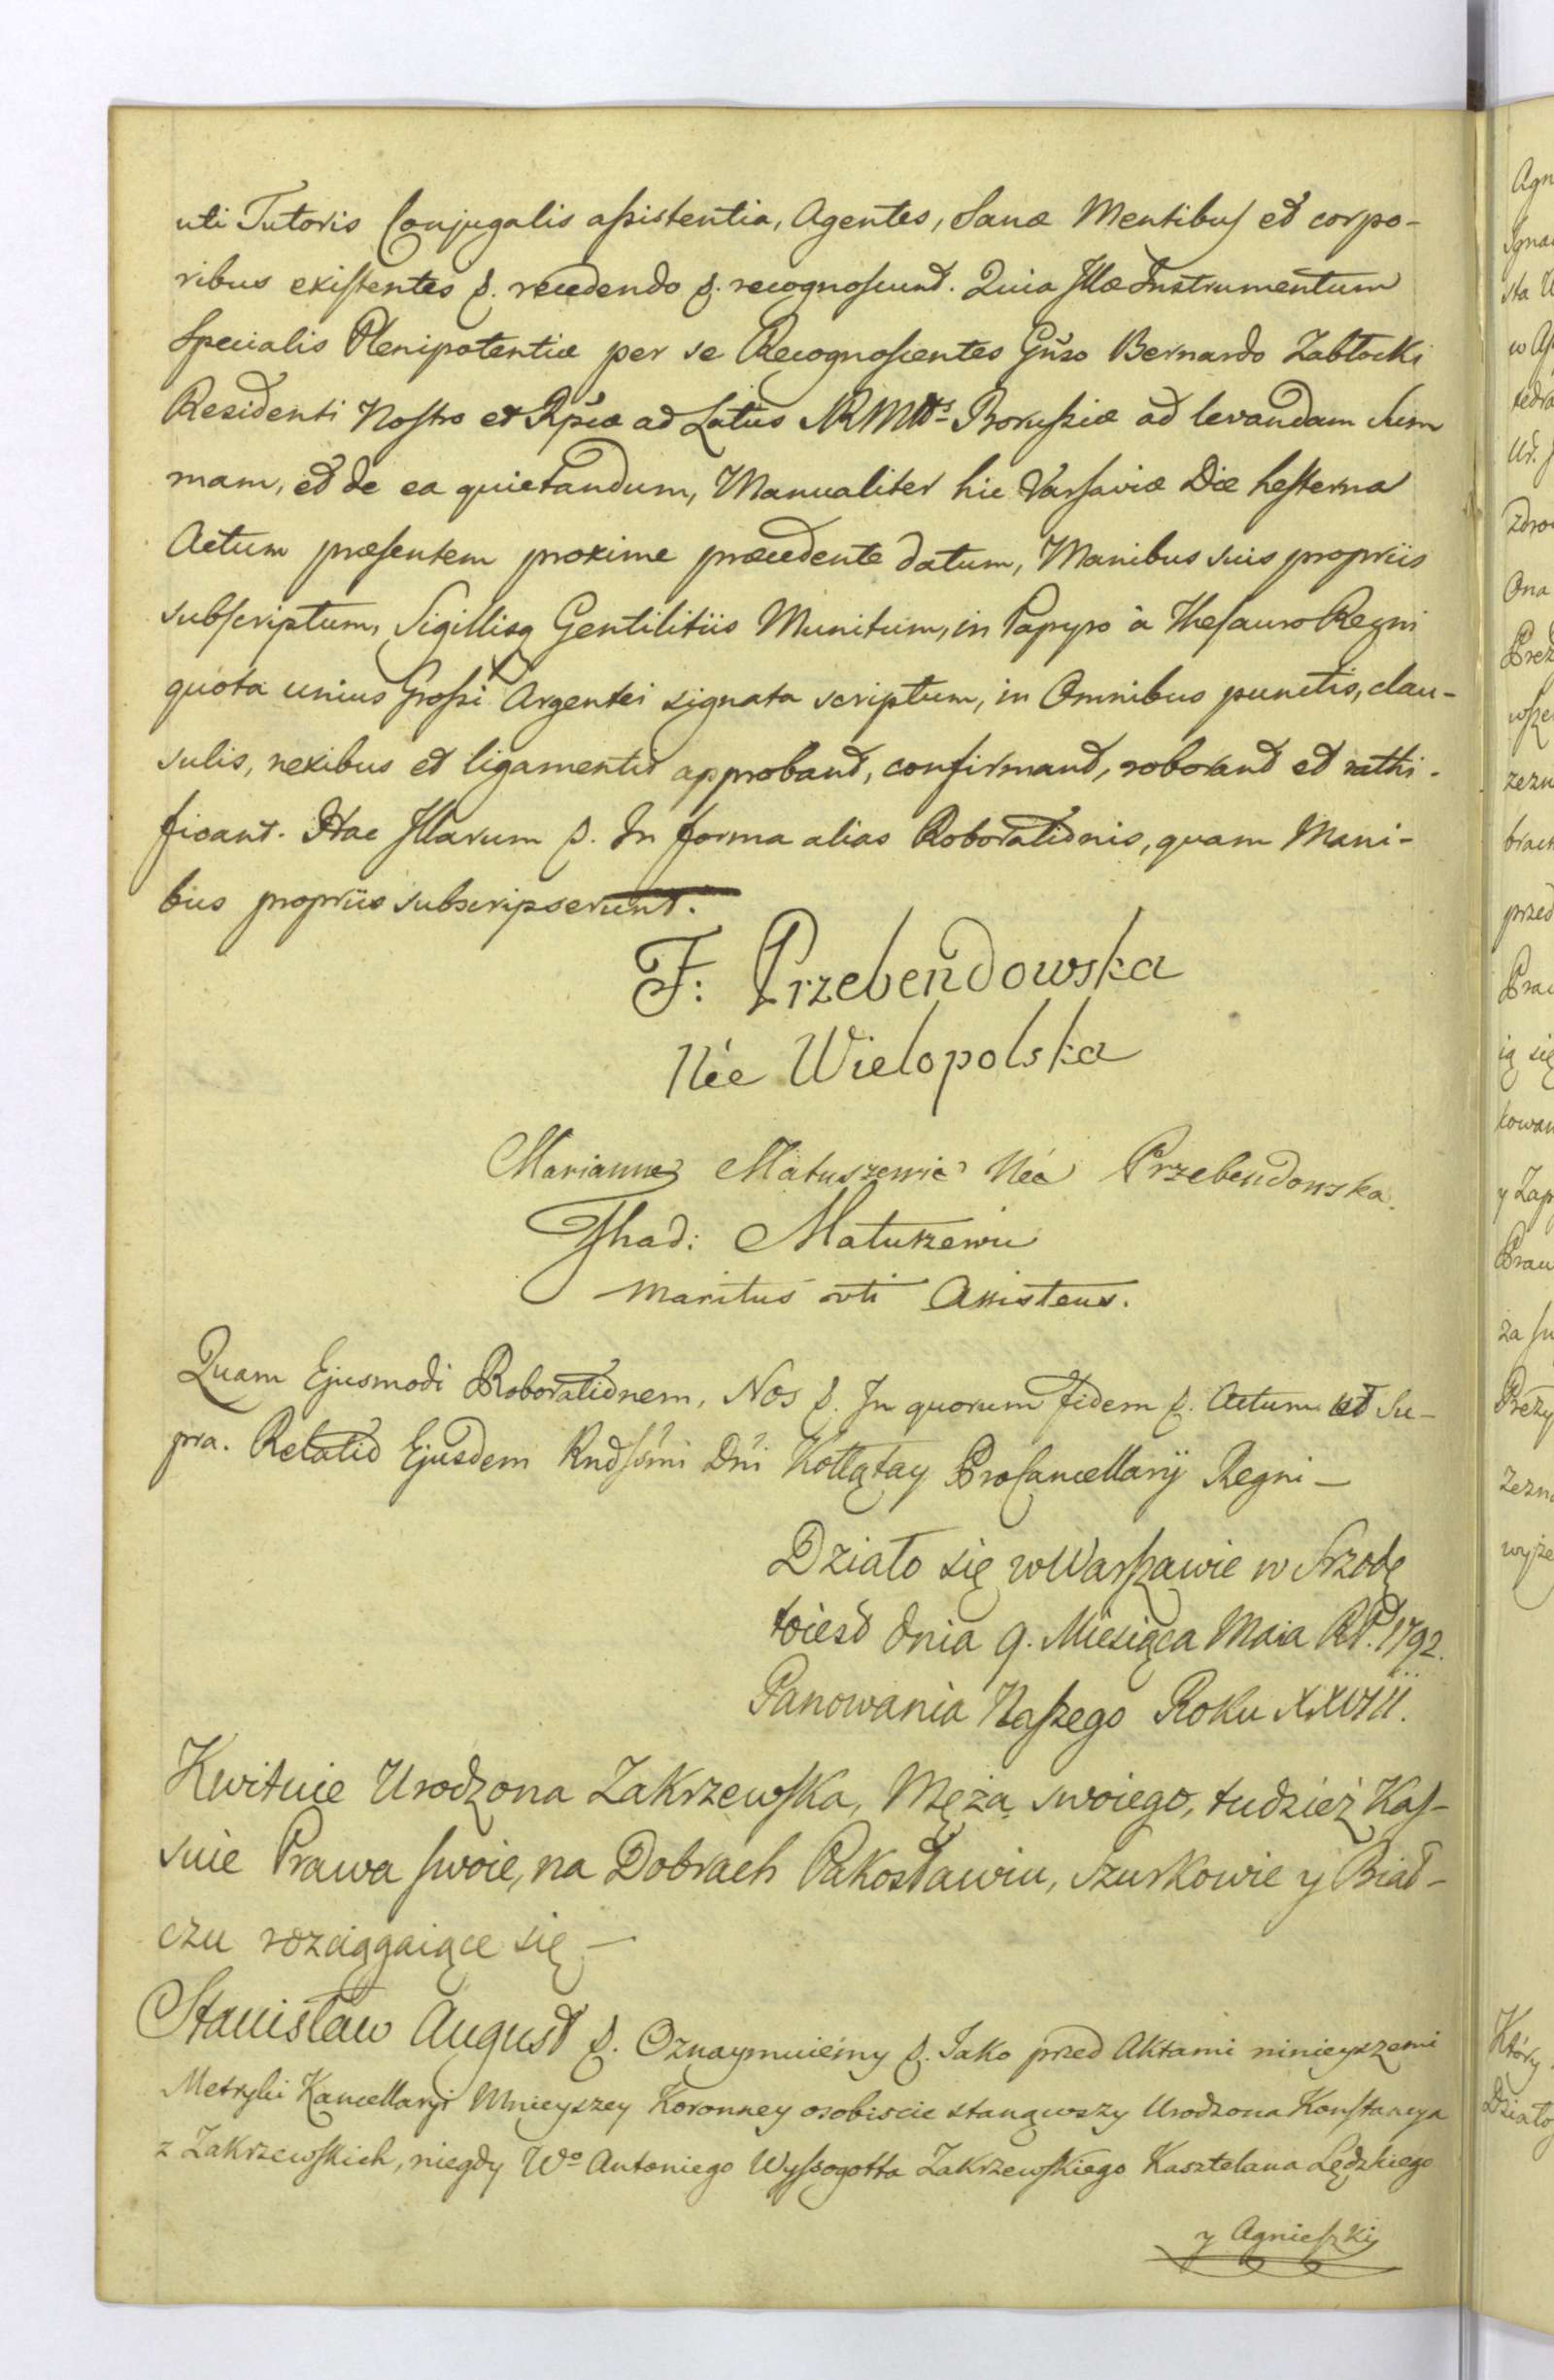 uti Tutoris Conjugalis aſsistentia, Agentes, Sanæ Mentibuſ et corpo-
ribus exiſtentes &. recedendo &. recognoſcunt. Quia Illæ Instrumentum
Specialis Plenipotentiæ per se Recognoſcentes Gnso Bernardo Zabłocki
Residenti Noſtro et Rpcæ ad Latus Boruſsiæ ad levandam Sum
mam, et de ea quietandum, Manualiter hic Varſaviæ Die heſterna
Actum præſentem proxime præcedente datum, Manibus suis propriis
subſcriptum, Sigillisq Gentilitiis Munitum, in Papyro à Theſauro Regni
quota unius Groſsi Argentei signata scriptum, in Omnibus punctis, clau-
sulis, nexibus et ligamentis approband, confirmand, roborand et rathi-
ficant. Hac Illarum &. In forma alias Roborationis, quam Mani-
bus propriis subscripserunt.
F: Przebendowska
Née Wielopolska
Marianne Matuszewic Née Przebendowska
Thad: Matuszewic
maritus uti Assistens.
Quam Ejusmodi Roborationem, Nos &. In quorum fidem &. Actum ut Su-
pra. Relatio Ejusdem Rndſsmi Dni Kołłątay ProCancellarij Regni —
Działo się w Warſzawie w Srzodę
toiest dnia 9. Miesiąca Maia RP. 1792.
Panowania Naſzego Roku XXVIII.
Kwituie Urodzona Zakrzewſka, Męża swoiego, tudzież Kaſ-
suie Prawa ſwoie, na Dobrach Pakosławiu, Szurkowie y Biał-
czu rozciągaiące się —
Stanisław August &. Oznaymuiemy &. Jako przed Aktami ninieyszemi
Metryki Kancellaryi Mnieyszey Koronney osobiscie stanąwszy Urodzona Konſtancya
z Zakrzewſkich, niegdy Wo Antoniego Wyſsogotta Zakrzewſkiego Kasztelana Lędzkiego
y Agnieſzki